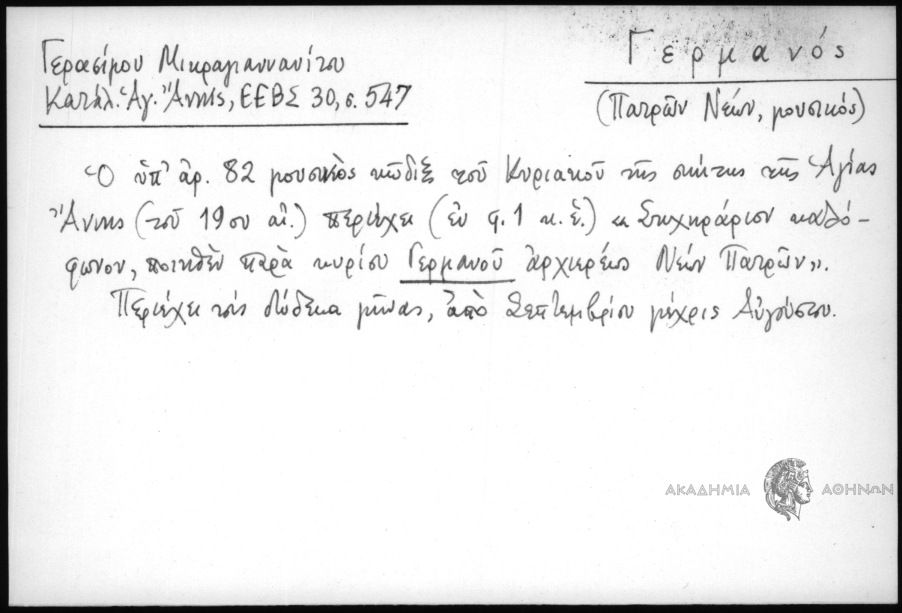 Γερασίμου Μικραγιαννανίτου
Κατάλ. Ἁγ. Ἄννης, ΕΕΒΣ 30, σ. 547
Γερμανός
(Πατρῶν Νέων, μουσικός)
Ὁ ὑπ' ἀρ. 82 μουσικὸς κῶδιξ τοῦ Κυριακοῦ τῆς σκήτης τῆς Ἁγίας
Ἄννης (τοῦ 19ου αἰ.) περιέχει (ἐν φ. 1 κ.ἑ.) «Στιχηράριον καλό-
φωνον, ποιηθὲν παρὰ κυρίου Γερμανοῦ ἀρχιερέως Νέων Πατρῶν».
Περιέχει τοὺς δώδεκα μῆνας, ἀπὸ Σεπτεμβρίου μέχρις Αὐγούστου.
ΑΚΑΔΗΜΙΑ ΑΘΗΝΩΝ